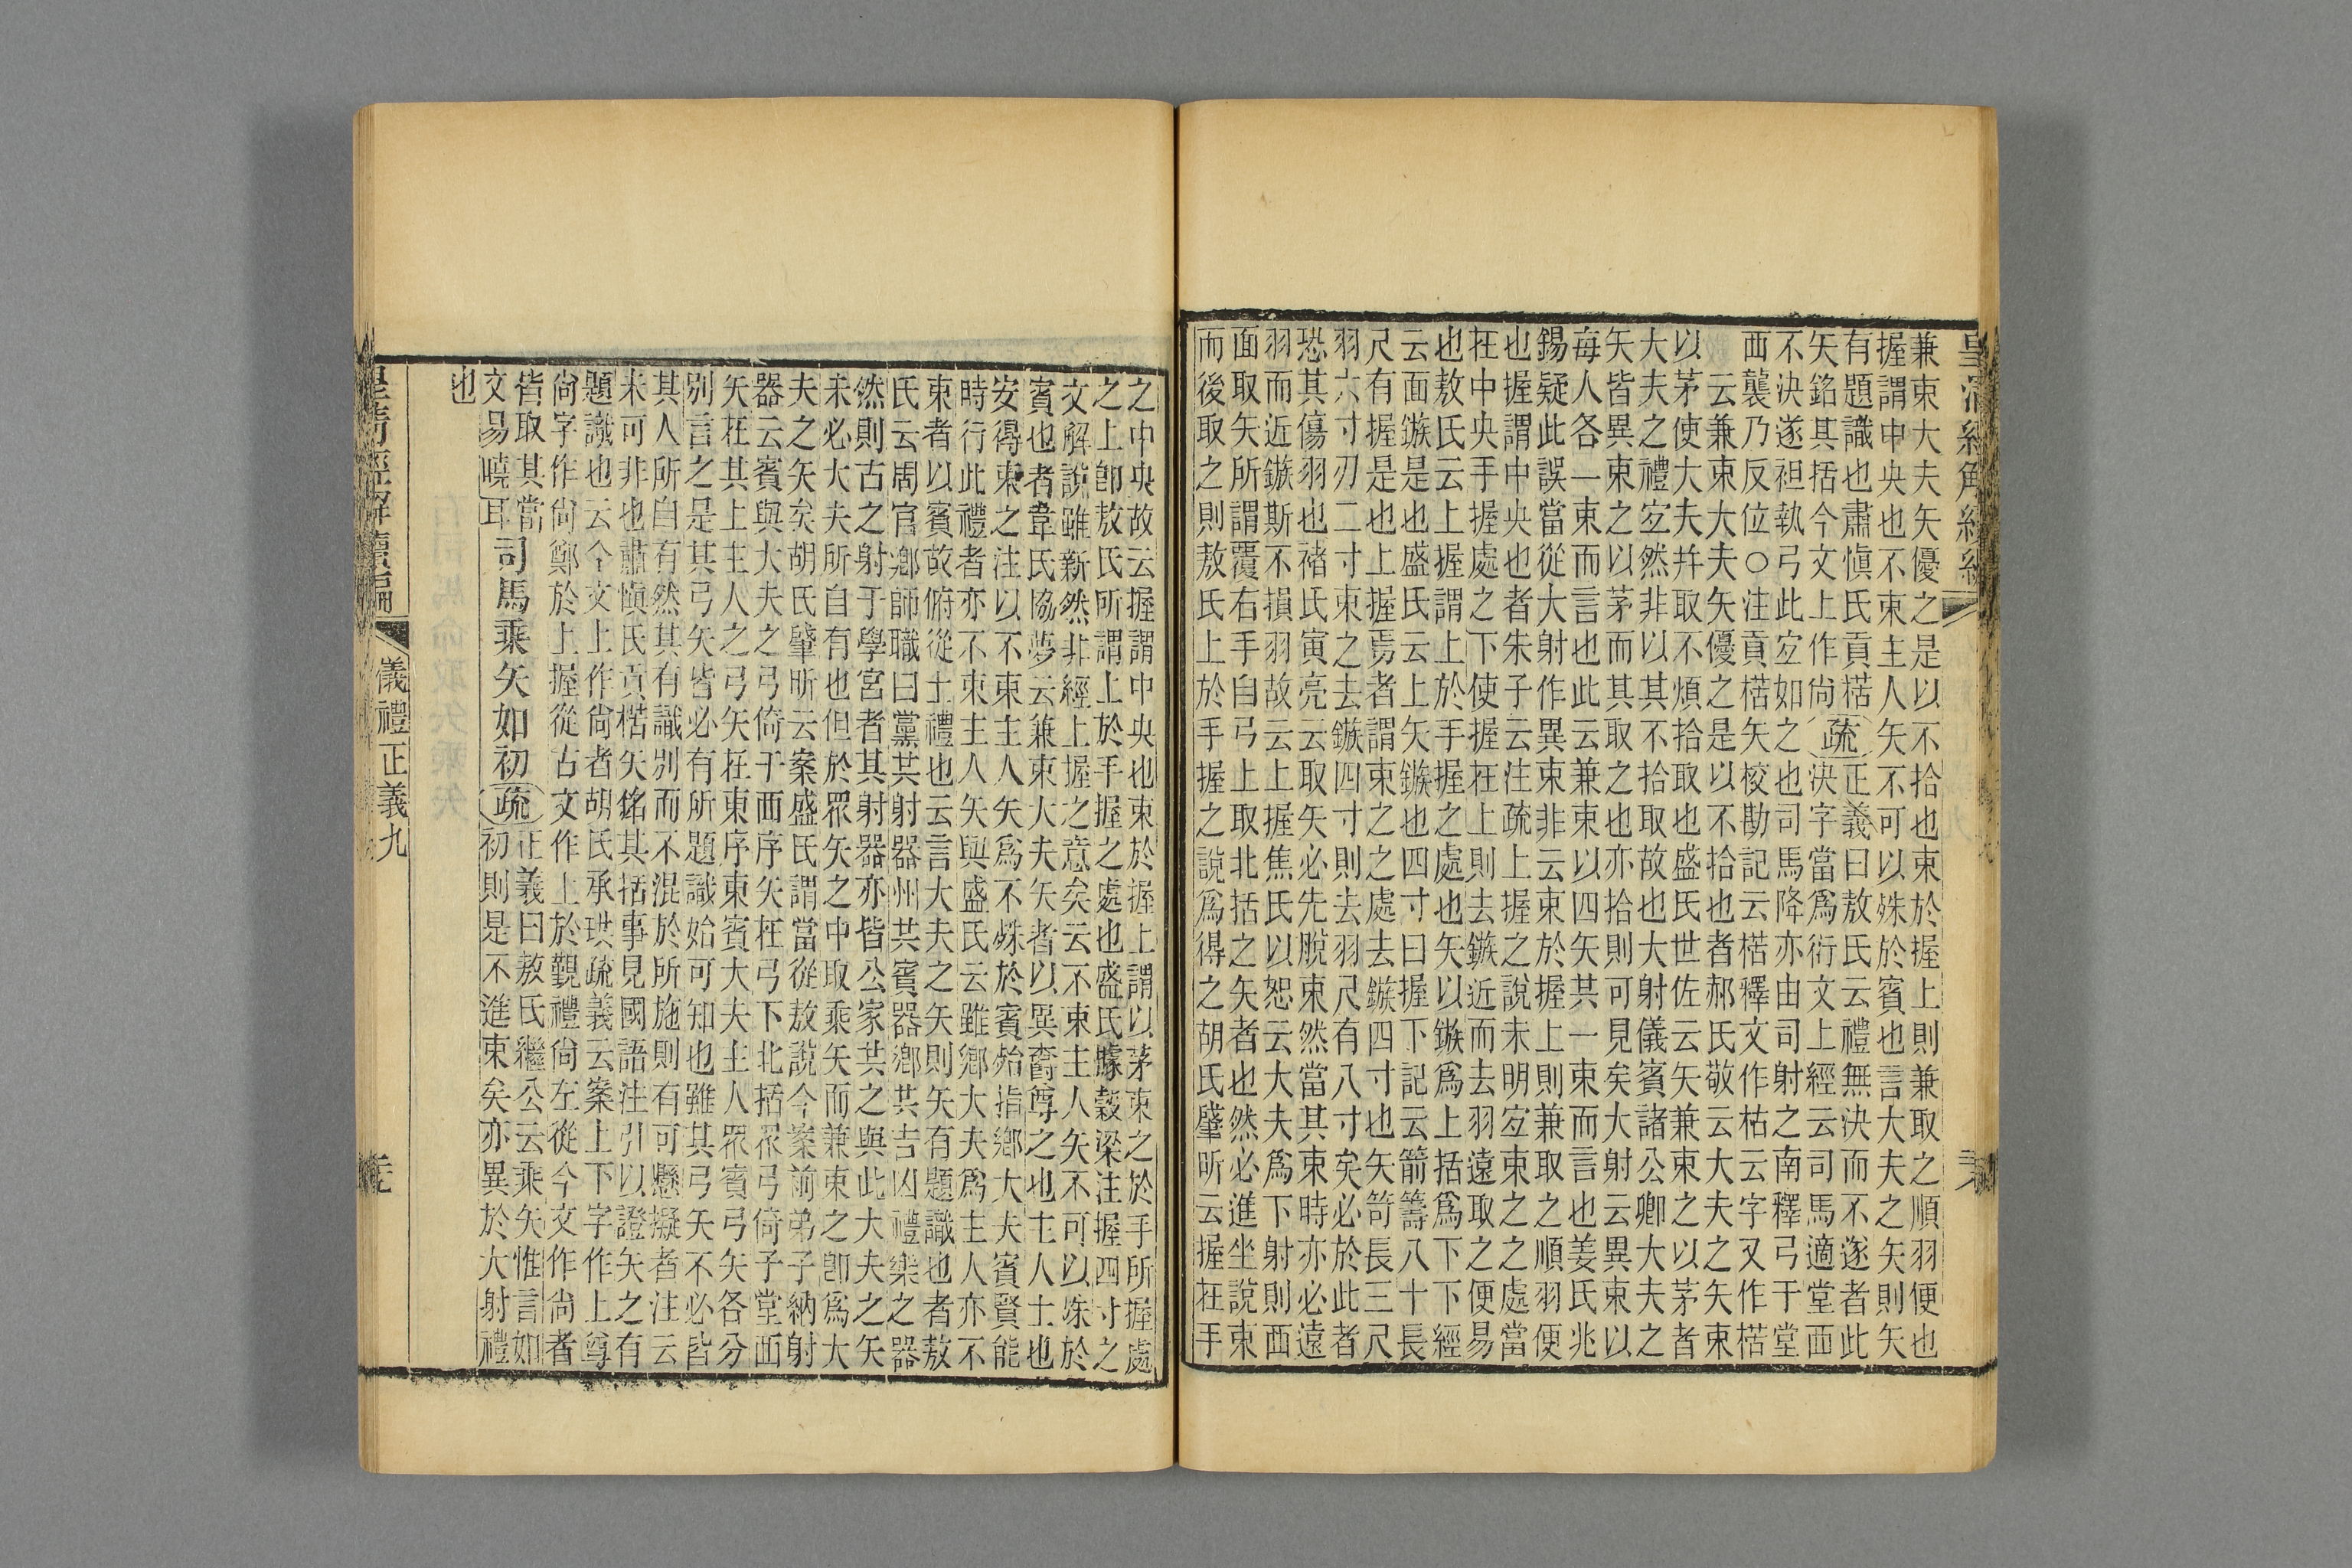 兼束大夫矢優之是以不拾也束於握上則兼取之順羽便也
握謂中央也不束主人矢不可以殊於賓也言大夫之矢則矢
有題識也肅愼氏貢楛疏正義曰敖氏云禮無決而不遂者此
矢銘其括今文上作尙決字當爲衍文上經云司馬適堂西
不決遂袒執弓此宐如之也司馬降亦由司射之南釋弓于堂
西襲乃反位○注貢楛矢校勘記云楛釋文作枯云字又作楛
云兼束大夫矢優之是以不拾也者郝氏敬云大夫之矢束
以茅使大夫幷取不煩拾取也盛氏世佐云矢兼束之以茅者
大夫之禮宐然非以其不拾取故也大射儀賓諸公卿大夫之
矢皆異束之以茅而其取之也亦拾則可見矣大射云異束以
每人各一束而言也此云兼束以四矢其一束而言也姜氏兆
錫疑此誤當從大射作異束非云束於握上則兼取之順羽便
也握謂中央也者朱子云注疏上握之說未明宐束之之處當
在中央手握處之下使握在上則去鏃近而去羽遠取之便易
也敖氏云上握謂上於手握之處也矢以鏃爲上括爲下下經
云面鏃是也盛氏云上矢鏃也四寸曰握下記云箭籌八十長
尺有握是也上握焉者謂束之之處去鏃四寸也矢笴長三尺
羽六寸刃二寸束之去鏃四寸則去羽尺有八寸矣必於此者
恐其傷羽也褚氏寅亮云取矢必先脫束然當其束時亦必遠
羽而近鏃斯不損羽故云上握焦氏以恕云大夫爲下射則西
面取矢所謂覆右手自弓上取北括之矢者也然必進坐說束
而後取之則敖氏上於手握之說爲得之胡氏肇昕云握在手
之中央故云握謂中央也束於握上謂以茅束之於手所握處
之上卽敖氏所謂上於手握之處也盛氏據穀梁注握四寸之
文解說雖新然非經上握之意矣云不束主人矢不可以殊於
賓也者韋氏協夢云兼束大夫矢者以異爵尊之也主人士也
安得束之注以不束主人矢爲不殊於賓殆指鄉大夫賓賢能
時行此禮者亦不束主人矢與盛氏云雖鄉大夫爲主人亦不
束者以賓故俯從士禮也云言大夫之矢則矢有題識也者敖
氏云周官鄉師職曰黨共射器州共賓器鄉共吉凶禮樂之器
然則古之射于學宮者其射器亦皆公家共之與此大夫之矢
未必大夫所自有也但於眾矢之中取乘矢而兼束之卽爲大
夫之矢矣胡氏肇昕云案盛氏謂當從敖說今案前弟子納射
器云賓與大夫之弓倚于西序矢在弓下北括眾弓倚于堂西
矢在其上主人之弓矢在東序東賓大夫主人眾賓弓矢各分
別言之是其弓矢皆必有所題識始可知也雖其弓矢不必皆
其人所自有然其有識別而不混於所施則有可懸擬者注云
未可非也肅愼氏貢楛矢銘其括事見國語注引以證矢之有
題識也云今文上作尙者胡氏承珙疏義云案上下字作上尊
尙字作尙鄭於上握從古文作上於觀禮尙左從今文作尙者
皆取其當司馬乘矢如初疏正義曰敖氏繼公云乘矢惟言如
文易曉耳初則是不進束矣亦異於大射禮
也
皇淸經解續編
儀禮正義九